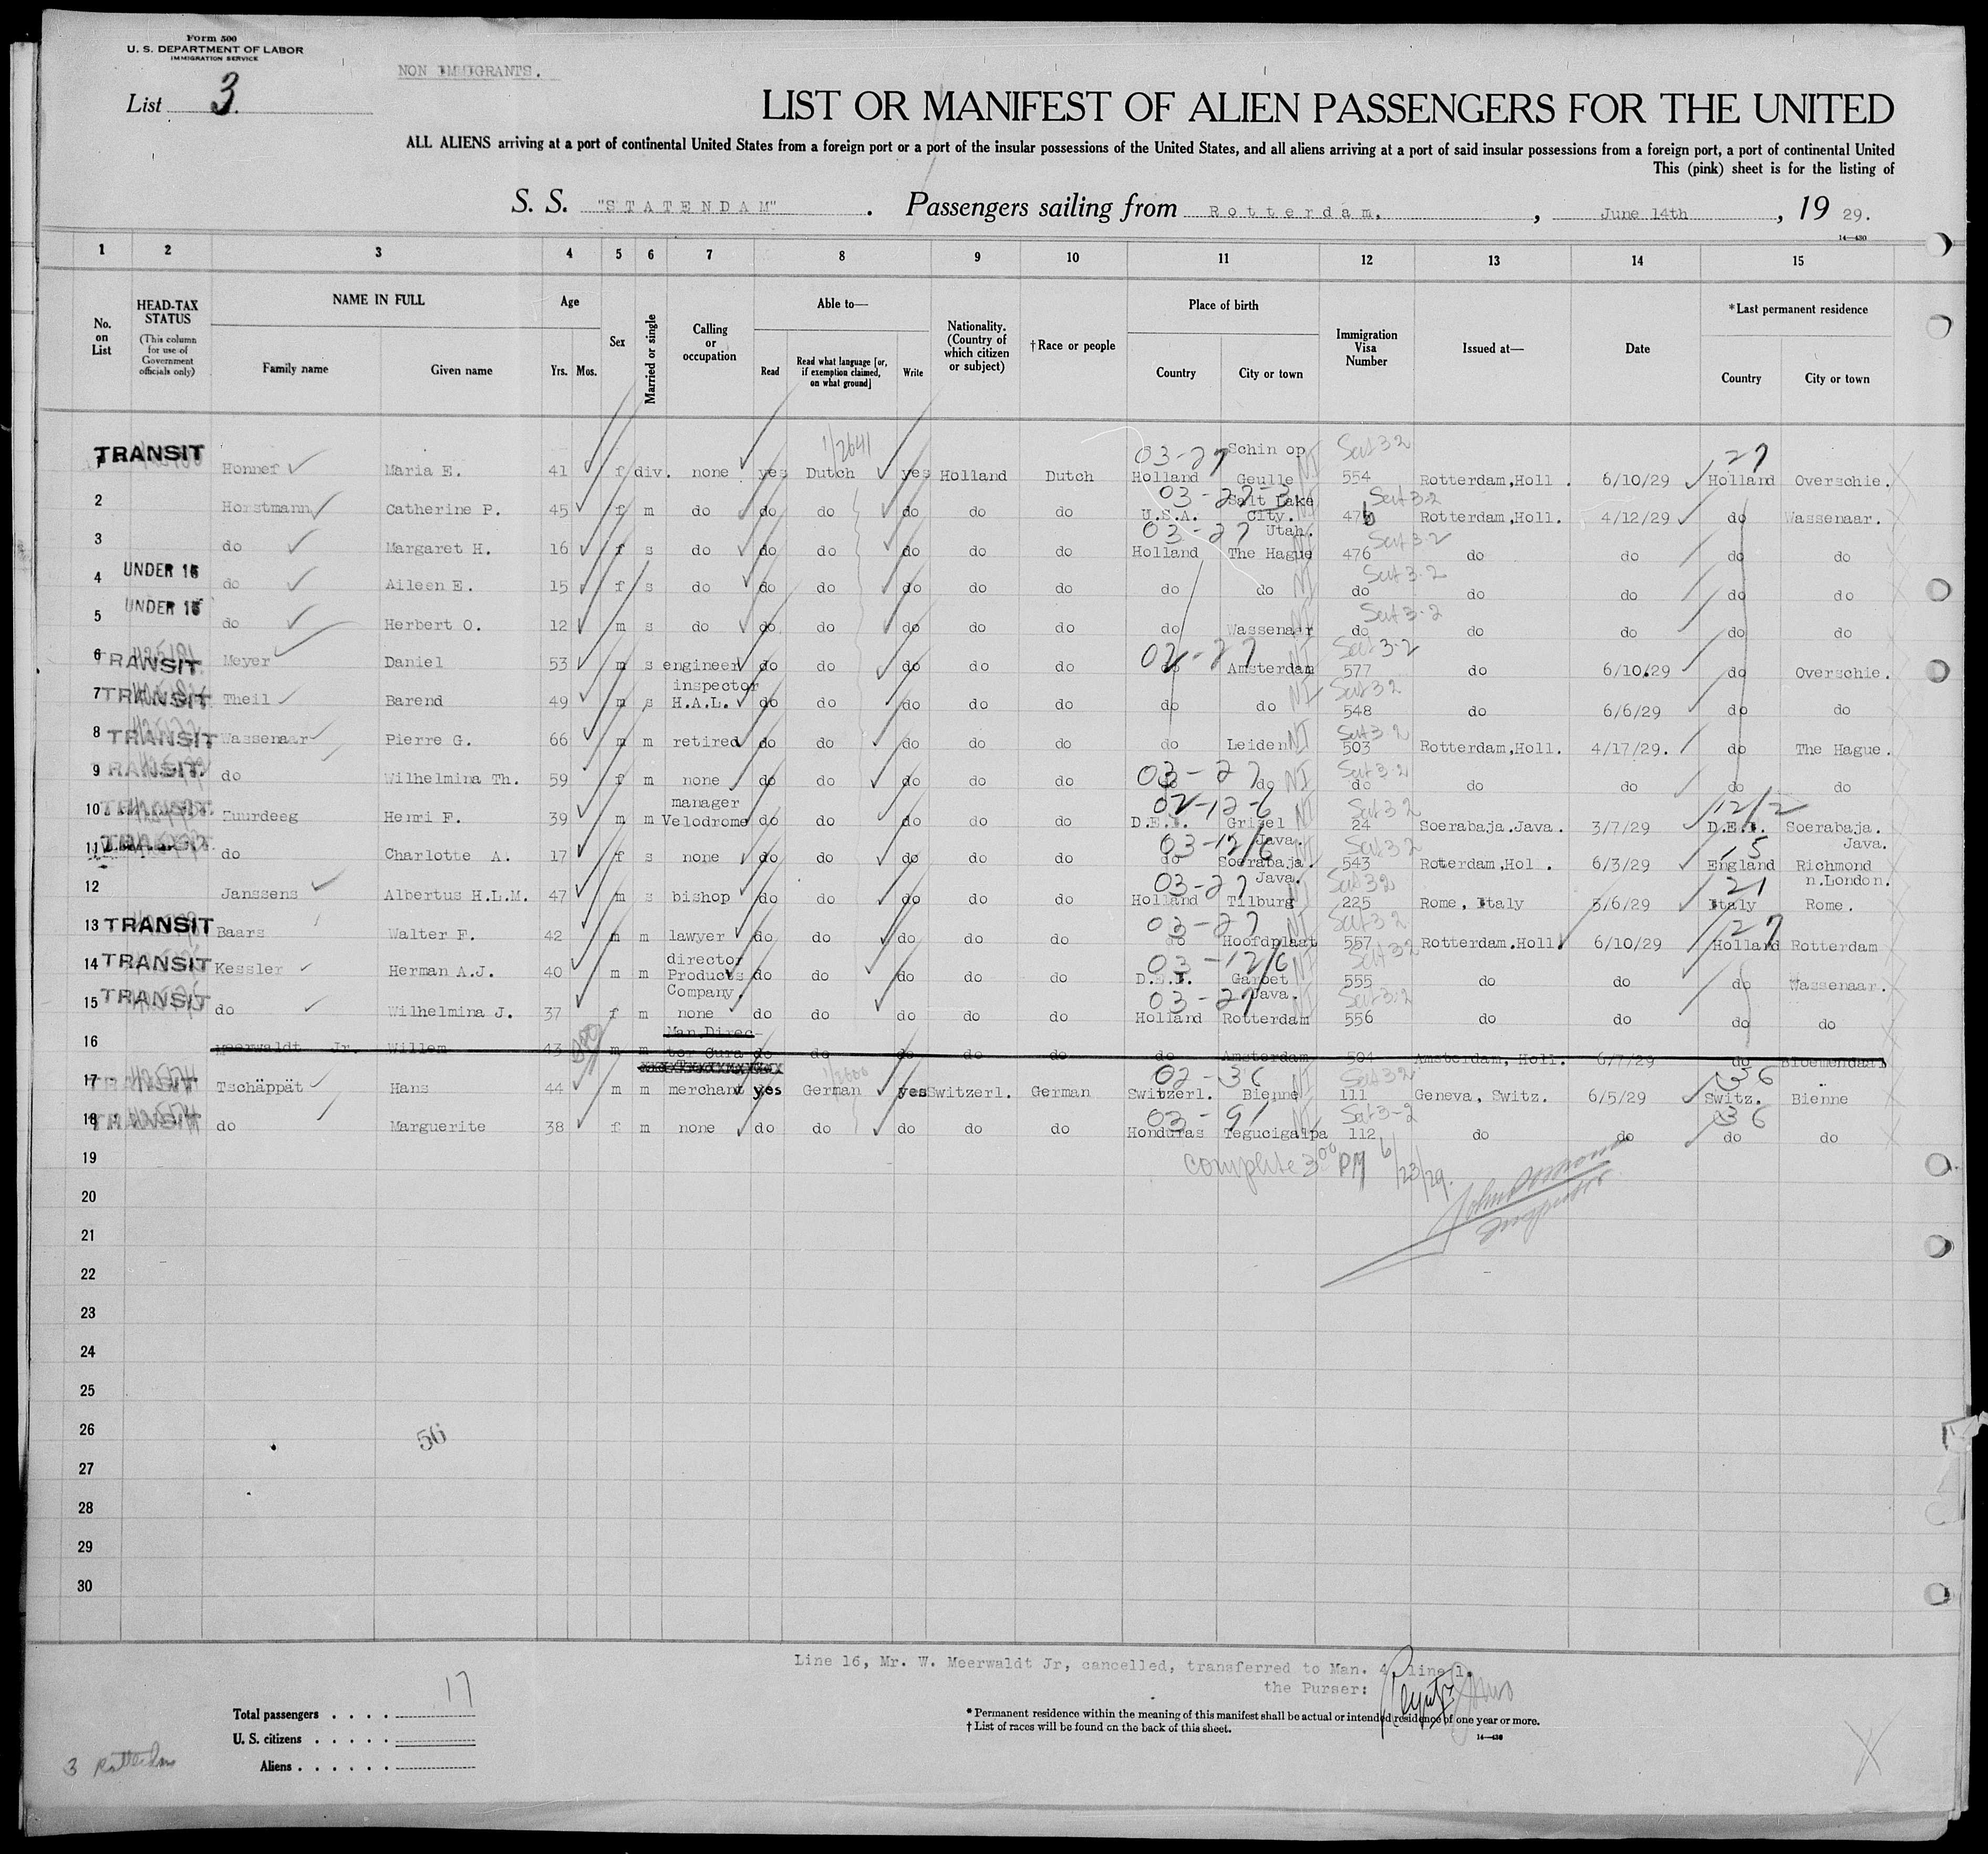 Form 500
U. S. DEPARTMENT OF LABOR
IMMIGRATION SERVICE
NON IMMIGRANTS.
List 3.
LIST OR MANIFEST OF ALIEN PASSENGERS FOR THE UNITED
ALL ALIENS arriving at a port of continental United States from a foreign port or a port of the insular possessions of the United States, and all aliens arriving at a port of said insular possessions from a foreign port, a port of continental United
This (pink) sheet is for the listing of
S. S. "STATENDAM" . Passengers sailing from Rotterdam. , June 14th , 19 29.
14—430
1 2 3 4 5 6 7 8 9 10 11 12 13 14 15
No. on List
HEAD-TAX STATUS
(This column for use of Government officials only)
NAME IN FULL
Family name Given name
Age
Yrs. Mos.
Sex
Married or single
Calling or occupation
Able to—
Read
Read what language [or, if exemption claimed, on what ground]
Write
Nationality. (Country of which citizen or subject)
† Race or people
Place of birth
Country City or town
Immigration Visa Number
Issued at—
Date
*Last permanent residence
Country City or town
1 TRANSIT Honnef Maria E. 41 f div. none yes Dutch 1/2641 yes Holland Dutch 03-27 Holland Schin op Geulle NI Sect 3-2 554 Rotterdam,Holl. 6/10/29 27 Holland Overschie.
2 Horstmann Catherine P. 45 f m do do do do do do U.S.A. Salt Lake City. Utah. Sect 3-2 Rotterdam,Holl. 4/12/29 do Wassenaar.
3 do Margaret H. 16 f s do do do do do do 03-27 Holland The Hague NI Sect 3-2 476 do do do do
4 UNDER 16 do Aileen E. 15 f s do do do do do do do do NI Sect 3-2 do do do do do
5 UNDER 16 do Herbert O. 12 m s do do do do do do do Wassenaar NI Sect 3-2 do do do do do
6 TRANSIT Meyer Daniel 53 m s engineer do do do do do 02-27 do Amsterdam NI Sect 3-2 577 do 6/10.29 do Overschie.
7 TRANSIT Theil Barend 49 m s inspector H.A.L. do do do do do do do NI Sect 3-2 548 do 6/6/29 do do
8 TRANSIT Wassenaar Pierre G. 66 m m retired do do do do do do Leiden NI Sect 3-2 503 Rotterdam,Holl. 4/17/29. do The Hague.
9 TRANSIT do Wilhelmina Th. 59 f m none do do do do do 03-27 do do NI Sect 3-2 do do do do do
10 TRANSIT Zuurdeeg Henri F. 39 m m manager Velodrome do do do do do 02-12-6 D.E.I. Grisel Java. NI Sect 3-2 24 Soerabaja.Java. 3/7/29 12/2 D.E.I. Soerabaja. Java.
11 TRANSIT do Charlotte A. 17 f s none do do do do do 03-12/6 do Soerabaja. Java. NI Sect 3-2 543 Roterdam,Hol . 6/3/29 15 England Richmond n.London.
12 Janssens Albertus H.L.M. 47 m s bishop do do do do do 03-27 Holland Tilburg Sect 3-2 225 Rome, Italy 5/6/29 21 Italy Rome.
13 TRANSIT Baars Walter F. 42 m m lawyer do do do do do 03-27 do Hoofdplaat NI Sect 3-2 557 Rotterdam.Holl. 6/10/29 27 Holland Rotterdam
14 TRANSIT Kessler Herman A.J. 40 m m director Products Company. do do do do do 03-12/6 D.E.I. Garoet Java. NI Sect 3-2 555 do do do Wassenaar.
15 TRANSIT do Wilhelmina J. 37 f m none do do do do do 03-27 Holland Rotterdam NI Sect 3-2 556 do do do do
16 Meerwaldt Jr. Willem 43 m m Man.Direc- tor Cura do do do do do do Amsterdam 504 Amsterdam, Holl. 6/7/29 do Bloemendaal
17 TRANSIT Tschäppät Hans 44 m m merchant yes German yes Switzerl. German 02-36 Switzerl. Bienne NI Sect 3-2 111 Geneva, Switz. 6/5/29 36 Switz. Bienne
18 TRANSIT do Marguerite 38 f m none do do do do do 03-91 Honduras Tegucigalpa NI Sect 3-2 112 do do 36 do do
complete 3 00 PM 6/23/29.
Inspector
19
20
21
22
23
24
25
26
27
28
29
30
56
Line 16, Mr. W. Meerwaldt Jr, cancelled, transferred to Man. 4 line 1.
the Purser:
Total passengers . . . . 17
U. S. citizens . . . . .
Aliens . . . . . .
* Permanent residence within the meaning of this manifest shall be actual or intended residence of one year or more.
† List of races will be found on the back of this sheet.
14—430
3 Rotterdam